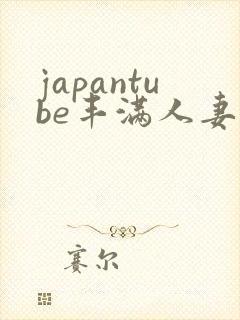 japantu
be丰满人妻
赛尔